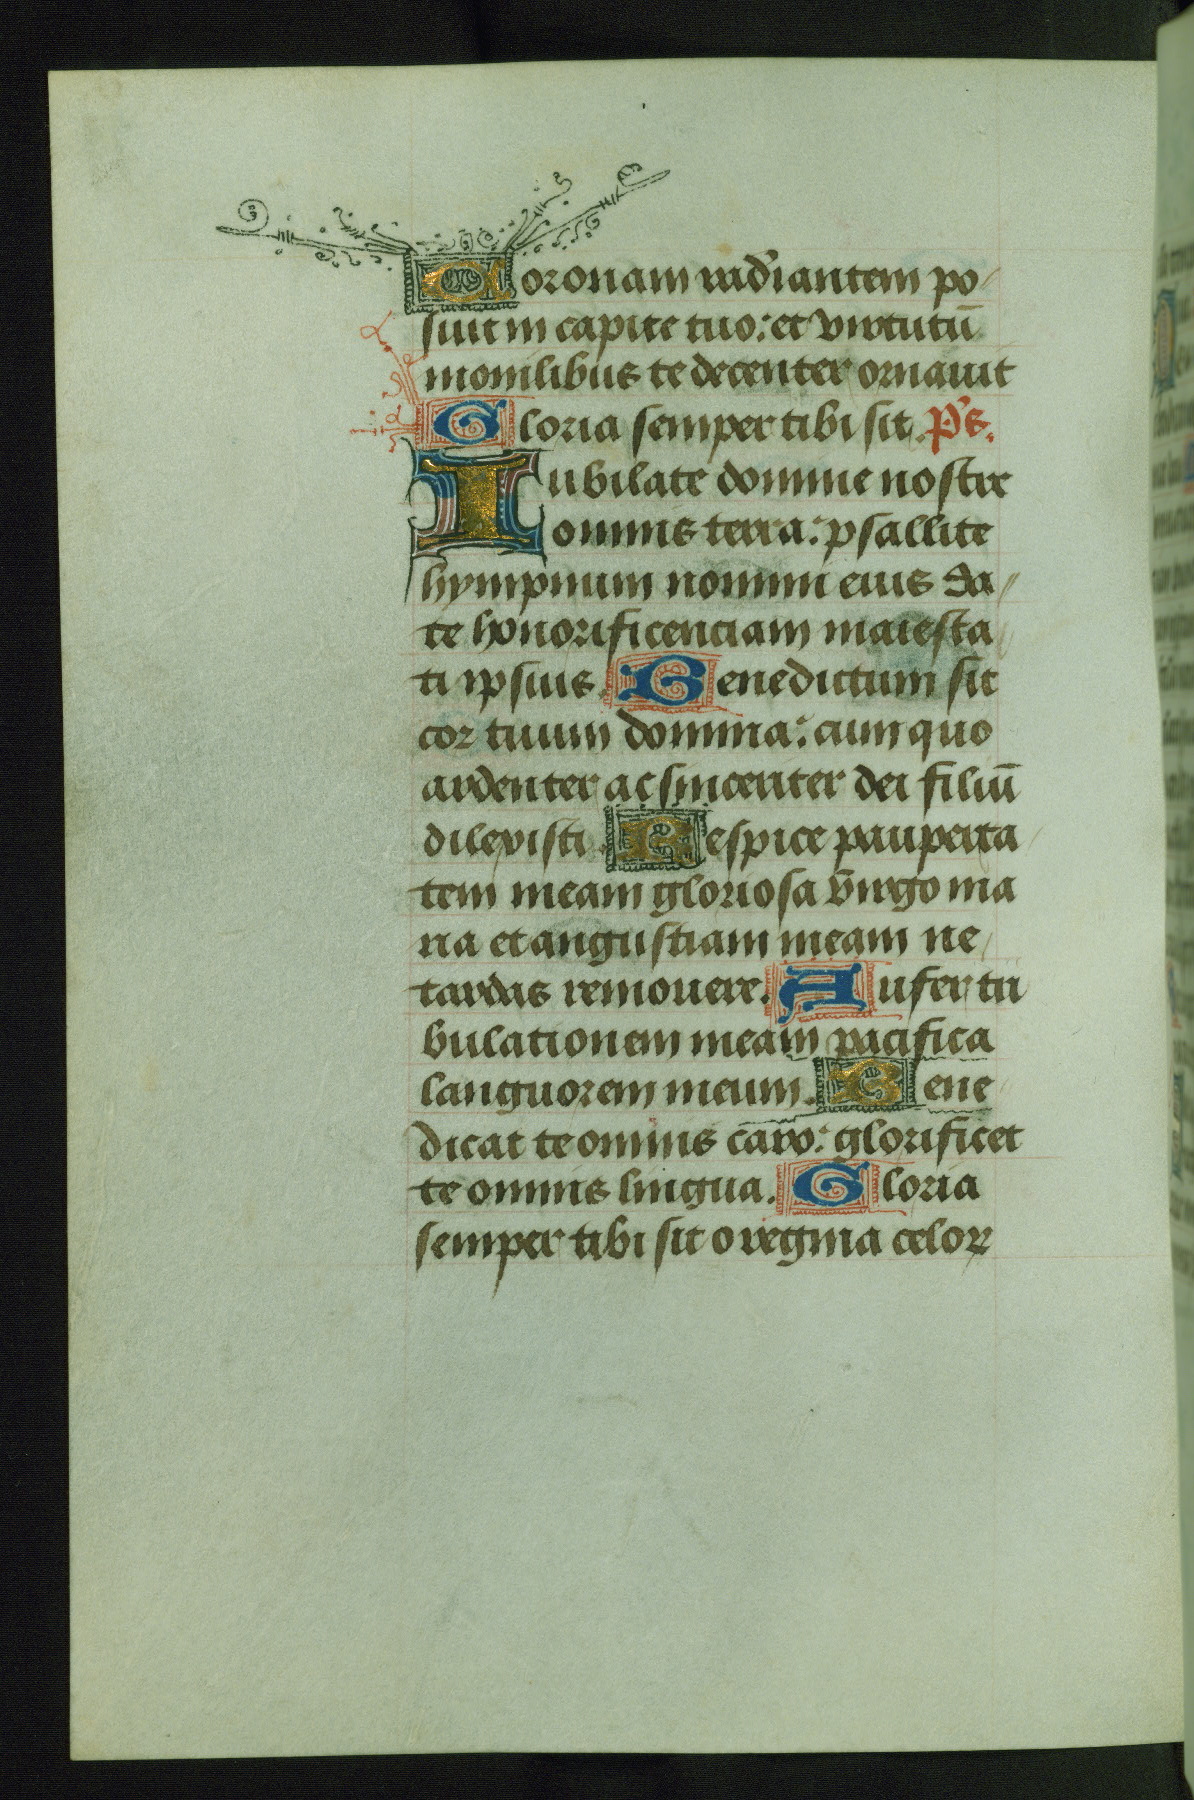 Coronam radiantem po
suit in capite tuo: et virtutū
monilibus te decenter ornauit
Gloria semper tibi sit. Ps.
Iubilate domine nostre
omnis terra: psallite
hympnum nomini eius da
te honorificenciam maiesta
ti ipsius. Benedictum sit
cor tuum domina: cum quo
ardenter ac sinceriter dei filiū
dilexisti. Respice pauperta
tem meam gloriosa virgo ma
ria et angustiam meam ne
tardas remouere. Aufer tri
bulationem meam pacifica
languorem meum. Bene
dicat te omnis caro: glorificet
te omnis lingua. Gloria
semper tibi sit o regina celoꝝ